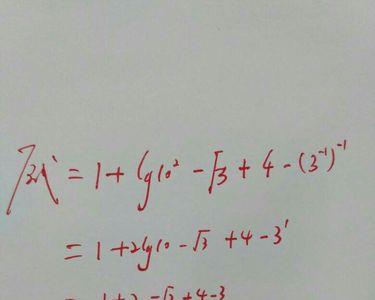 原式 = 1 + lg10² - √3 + 4 - (3⁻¹)⁻¹
= 1 + 2lg10 - √3 + 4 - 3¹
= 1 + 2 - √3 + 4 - 3